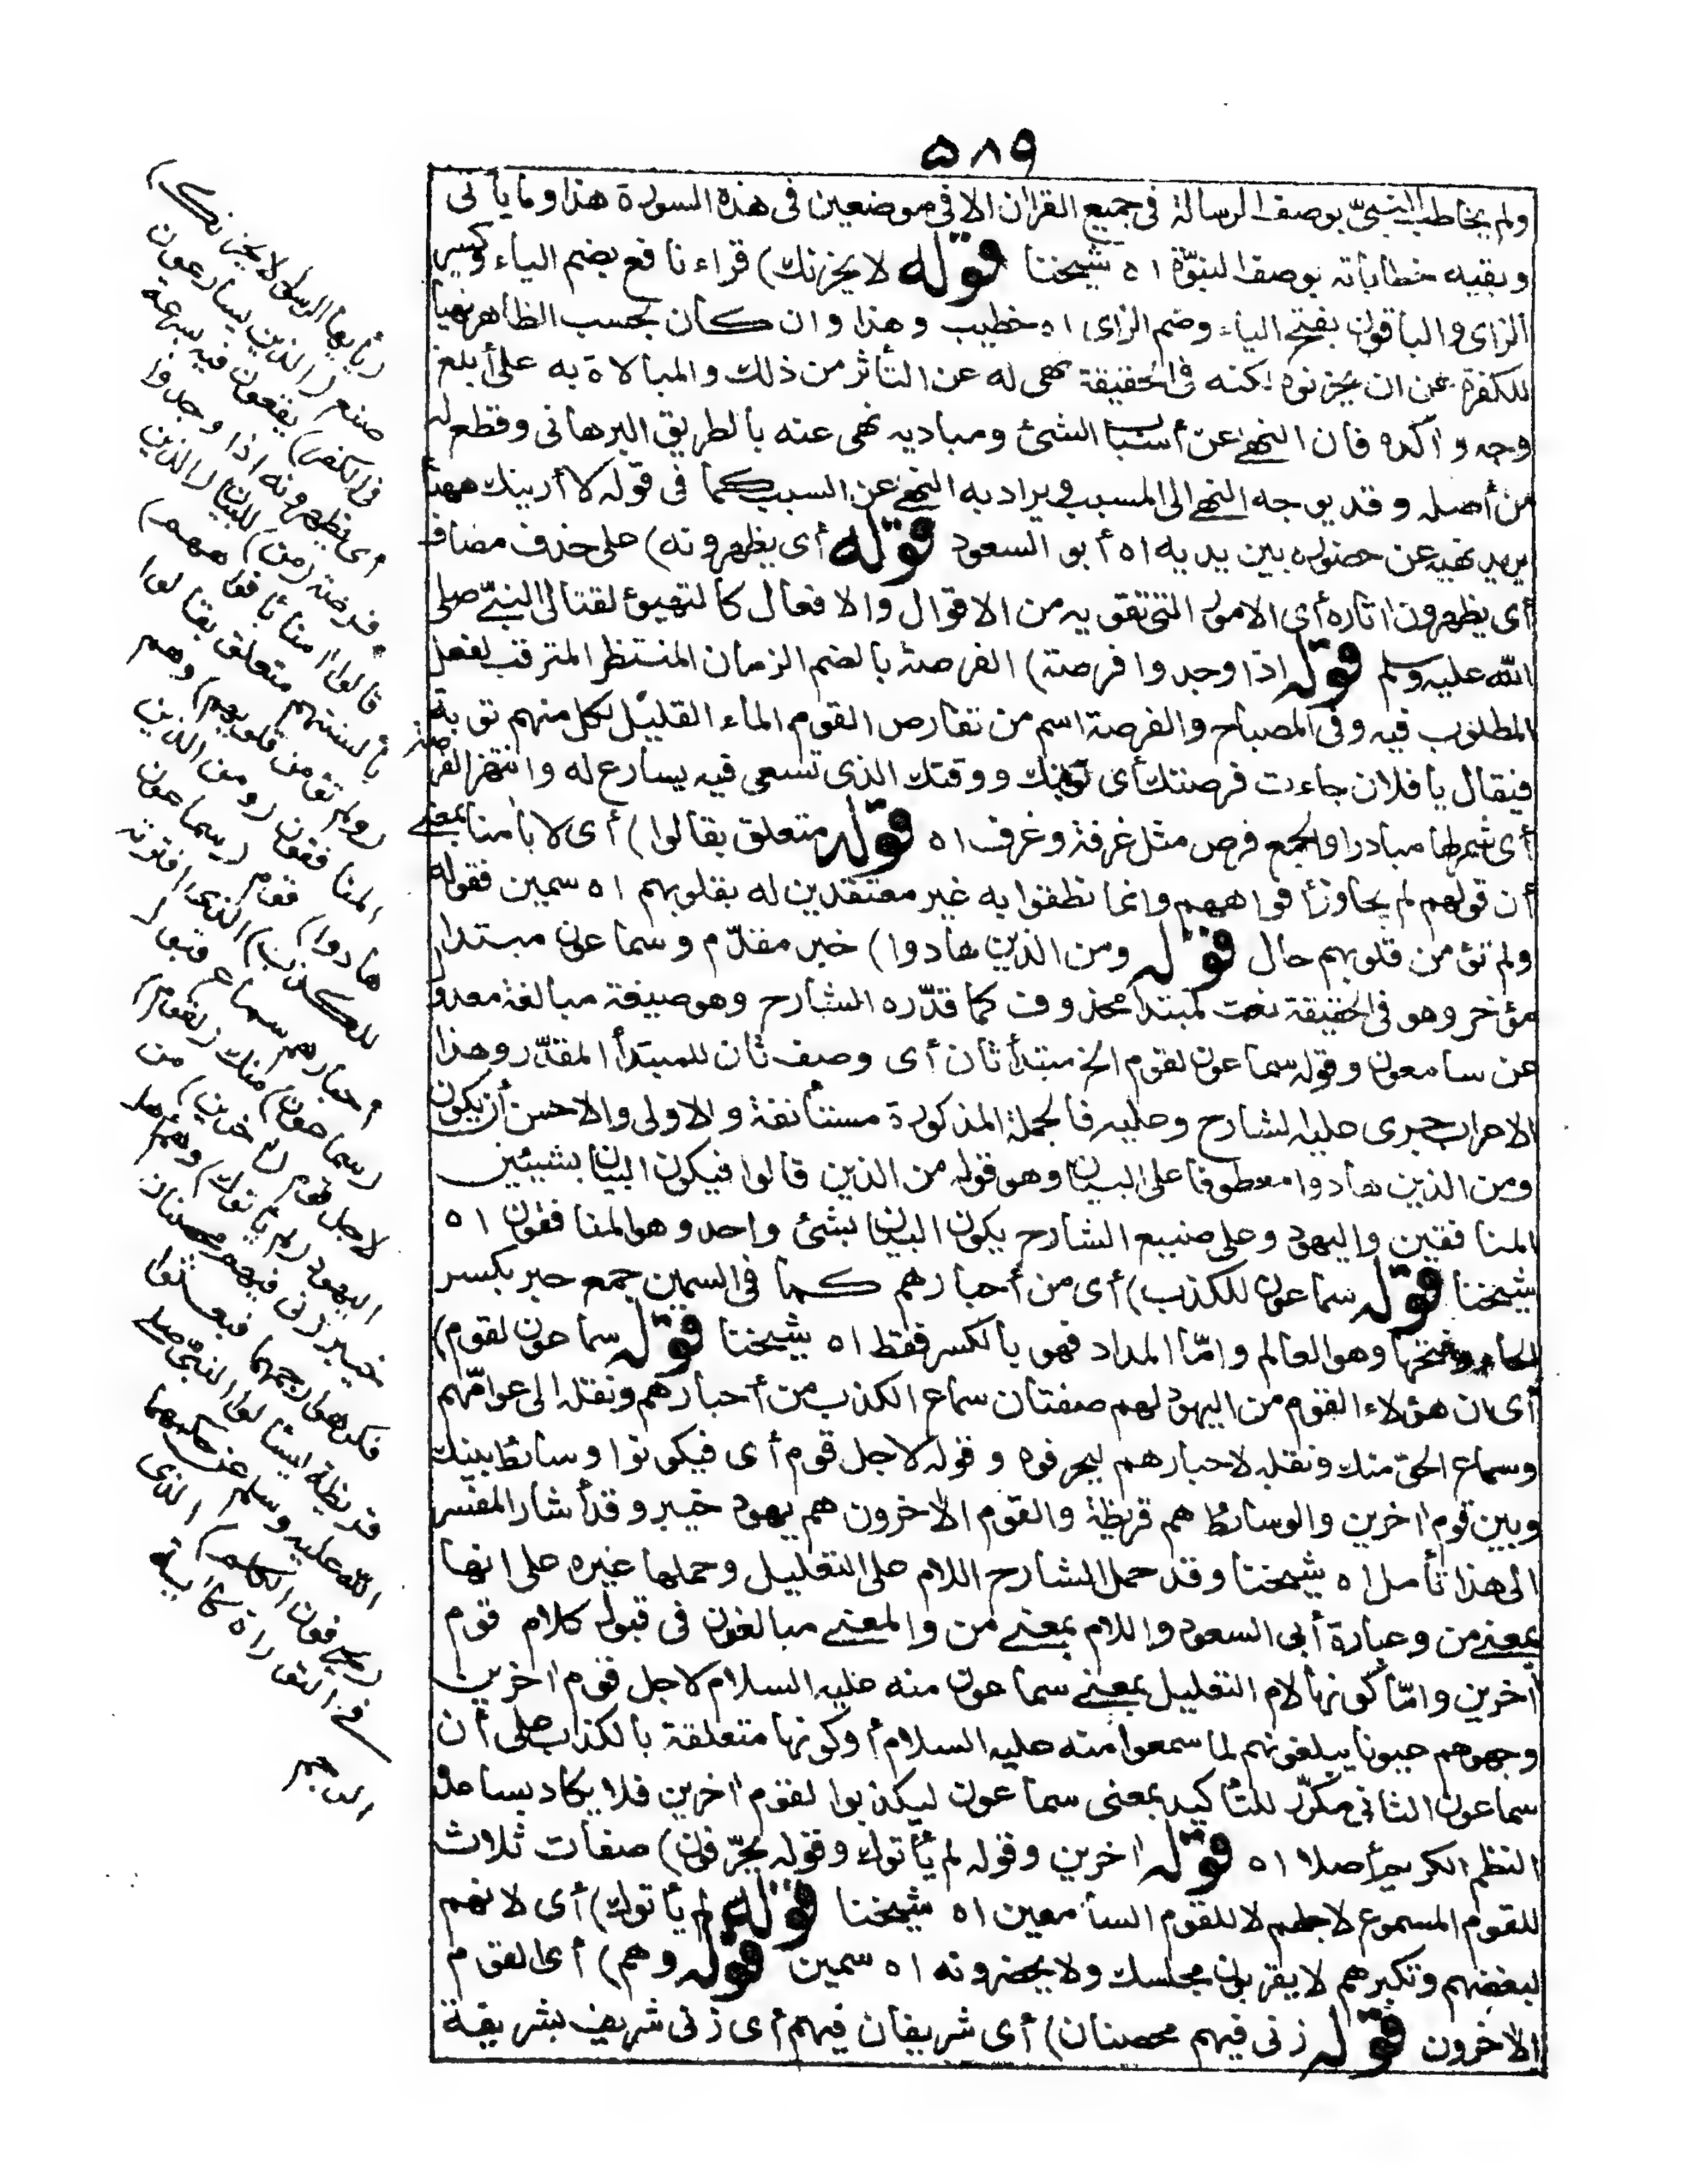 ٥٨٩
ولم يخاطب النبيّ بوصف الرسالة فى جميع القرآن الا فى موضعين فى هذه السورة هذا وما يأتى
وبقيه خطاباته بوصف النبوّة اه شيخنا قوله لا يحزنك) قراء نافع بضم الياء وكسر
الزاى والباقون بفتح الياء وضم الزاى اه خطيب وهذا وان كان بحسب الظاهر نهيا
للكفرة عن ان يحزنوه لكنه فى الحقيقة نهى له عن التأثر من ذلك والمبالاة به على أبلغ
وجه وآكده فان النهى عن أسباب الشئ ومباديه نهى عنه بالطريق البرهانى وقطع له
من أصله وقد يوجه النهى الى المسبب ويراد به النهى عن السبب كما فى قوله لا أرينك ههنا
يريد نهيه عن حضوره بين يديه اه أبو السعود قوله أى يظهرونه) على حذف مضاف
أى يظهرون اثاره أى الامور التى تقويه من الاقوال والافعال كالتهيؤ لقتال النبىّ صلى
الله عليه وسلم قوله اذا وجدوا فرصة) الفرصة بالضم الزمان المنتظر المترقب لفعل
المطلوب فيه وفى المصباح والفرصة اسم من تفارص القوم الماء القليل لكل منهم نوبة
فيقال يا فلان جاءت فرصتك أى نوبتك ووقتك الذى تسعى فيه يسارع له وانتهز الفرصة
أى شمر لها مبادرا والجمع فرص مثل غرفة وغرف اه قوله متعلق بقالوا) أى لا بآمنا بمعنى
أن قولهم لم يجاوز أفواههم وانما نطقوا به غير معتقدين له بقلوبهم اه سمين فقوله
ولم تؤمن قلوبهم حال قوله ومن الذين هادوا) خبر مقدّم وسماعون مبتدا
مؤخر وهو فى الحقيقة نعت لمبتدا محذوف كما قدّره الشارح وهو صيغة مبالغة معدول
عن سامعون وقوله سماعون لقوم الخ مبتدأ ثان أى وصف ثان للمبتدأ المقدّر وهذا
الاعراب جرى عليه الشارح وعليه فالجملة المذكورة مستأنفة والاولى والاحسن أن يكون
ومن الذين هادوا معطوفا على البيان وهو قوله من الذين قالوا فيكون البيان بشيئين
المنافقين واليهود وعلى صنيع الشارح يكون البيان بشئ واحد وهو المنافقون اه
شيخنا قوله سماعون للكذب) أى من أحبارهم كما فى السمين جمع حبر بكسر
الحاء وفتحها وهو العالم وامّا المداد فهو بالكسر فقط اه شيخنا قوله سماعون لقوم)
أى ان هؤلاء القوم من اليهود لهم صفتان سماع الكذب من أحبارهم ونقله الى عوامّهم
وسماع الحق منك ونقله لاحبارهم ليحرفوه وقوله لاجل قوم أى فيكونوا وسائط بينك
وبين قوم اخرين والوسائط هم قريظة والقوم الاخرون هم يهود خيبر وقد أشار المفسر
الى هذا تأمل اه شيخنا وقد حمل الشارح اللام على التعليل وحملها غيره على انها
بمعنى من وعبارة أبى السعود واللام بمعنى من والمعنى مبالغون فى قبول كلام قوم
اخرين وامّا كونها لام التعليل بمعنى سماعون منه عليه السلام لاجل قوم اخرين
وجهوهم عيونا ليبلغونهم لما سمعوا منه عليه السلام أو كونها متعلقة بالكذب على أن
سماعون الثانى مكرّر للتأكيد بمعنى سماعون ليكذبوا لقوم اخرين فلا يكاد يساعده
النظم الكريم أصلا اه قوله اخرين وقوله لم يأتوك وقوله يحرّفون) صفات ثلاث
للقوم المسموع لاجلهم لا للقوم السامعين اه شيخنا قوله لم يأتوك) أى لانهم
لبغضهم وتكبرهم لا يقربون مجلسك ولا يحضرونه اه سمين قوله وهم) أى القوم
الاخرون قوله زنى فيهم محصنان) أى شريفان فيهم أى زنى شريف بشريفة
(يأيها الرسول لا يحزنك)
صنع (الذين يسارعون
فى الكفر) يقعون فيه بسرعة
أى يظهرونه اذا وجدوا
فرصة (من) للبيان (الذين
قالوا آمنا بأفواههم)
بألسنتهم متعلق بقالوا
(ولم تؤمن قلوبهم) وهم
المنافقون (ومن الذين
هادوا) قوم (سماعون
للكذب) الذى افترته
أحبارهم سماع قبول
(سماعون) منك (لقوم)
لاجل قوم (اخرين) من
اليهود (لم يأتوك) وهم أهل
خيبر زنى فيهم محصنان
فكرهوا رجمهما فبعثوا
قريظة ليسألوا النبى صلى
الله عليه وسلم عن حكمهما
(يحرفون الكلم) الذى
فى التوراة كآية
الرجم